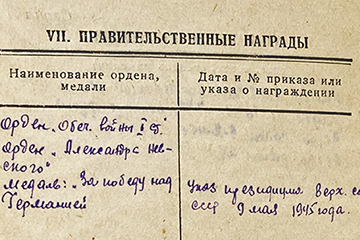 VII. ПРАВИТЕЛЬСТВЕННЫЕ НАГРАДЫ
Наименование ордена,
медали
Дата и № приказа или
указа о награждении
Орден „Отеч. войны I ст."
Орден „Александра Нев-
ского"
Медаль: „За победу над
Германией
Указ президиума Верх. со
ссср 9 мая 1945 года.